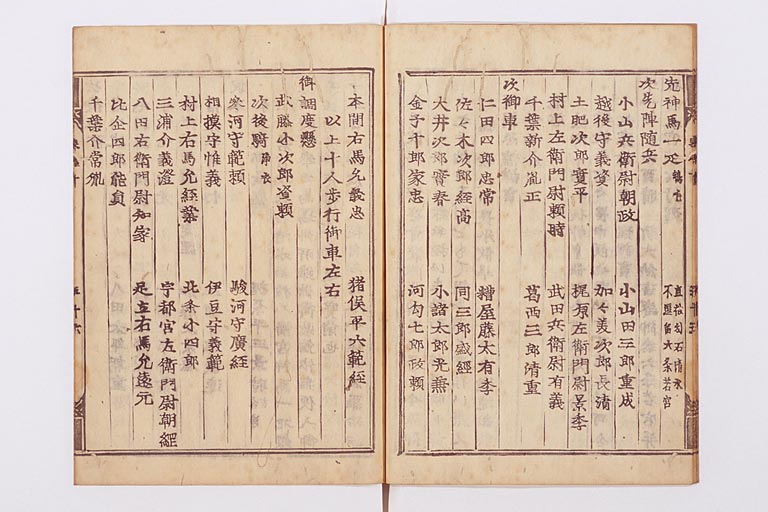 先神馬一疋
次先陣随兵
小山兵衛尉朝政　小山田三郎重成
越後守義資　加々美次郎長清
土肥次郎實平　梶原左衛門尉景季
村上左衛門尉頼時　武田兵衛尉有義
千葉新介胤正　葛西三郎清重
次御車
仁田四郎忠常　糟屋藤太有季
佐々木次郎經高　同三郎盛經
大井次郎實春　小諸太郎光兼
金子十郎家忠　河勾七郎政頼
本間右馬允義忠　猪俣平六範經
以上十人歩行御車左右
御調度懸
武藤小次郎資頼
次後騎
寒河守範頼　駿河守廣綱
相摸守惟義　伊豆守義範
村上右馬允經業　北条小四郎
三浦介義澄　宇都宮左衛門尉朝經
八田右衛門尉知家　足立右馬允遠元
比企四郎能員
千葉介常胤